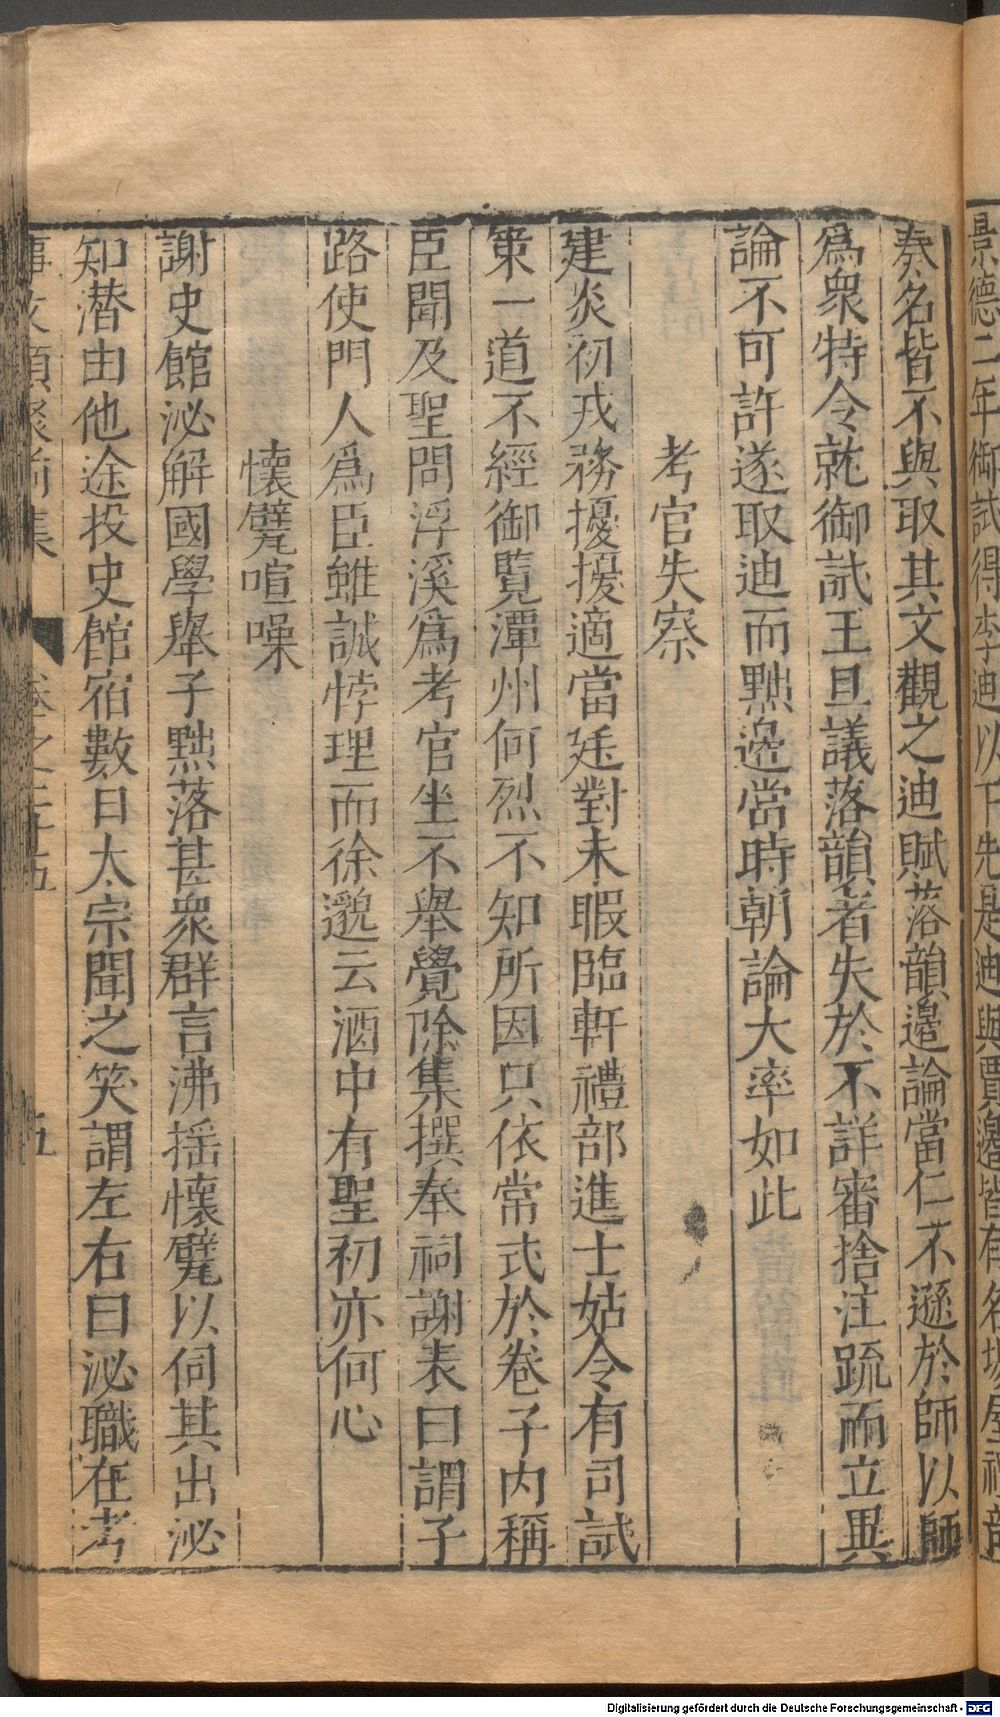 景德二年御試得李迪以下先是迪與賈邊皆有名場屋禮部
奏名皆不與取其文觀之迪賦落韻邊論當仁不遜於師以師
爲衆特令就御試王旦議落韻者失於不詳審捨注疏而立異
論不可許遂取迪而黜邊當時朝論大率如此
考官失察
建炎初戎務擾擾適當廷對未暇臨軒禮部進士姑令有司試
策一道不經御覽潭州何烈不知所因只依常式於卷子內稱
臣聞及聖問浮溪爲考官坐不舉覺除集撰奉祠謝表曰謂子
路使門人爲臣雖誠悖理而徐邈云酒中有聖初亦何心
懷甓喧噪
謝史館泌解國學舉子黜落甚衆群言沸揺懷甓以伺其出泌
知潜由他途投史館宿數日太宗聞之笑謂左右曰泌職在考
事文類聚前集 卷之二十五 五
Digitalisierung gefördert durch die Deutsche Forschungsgemeinschaft - DFG